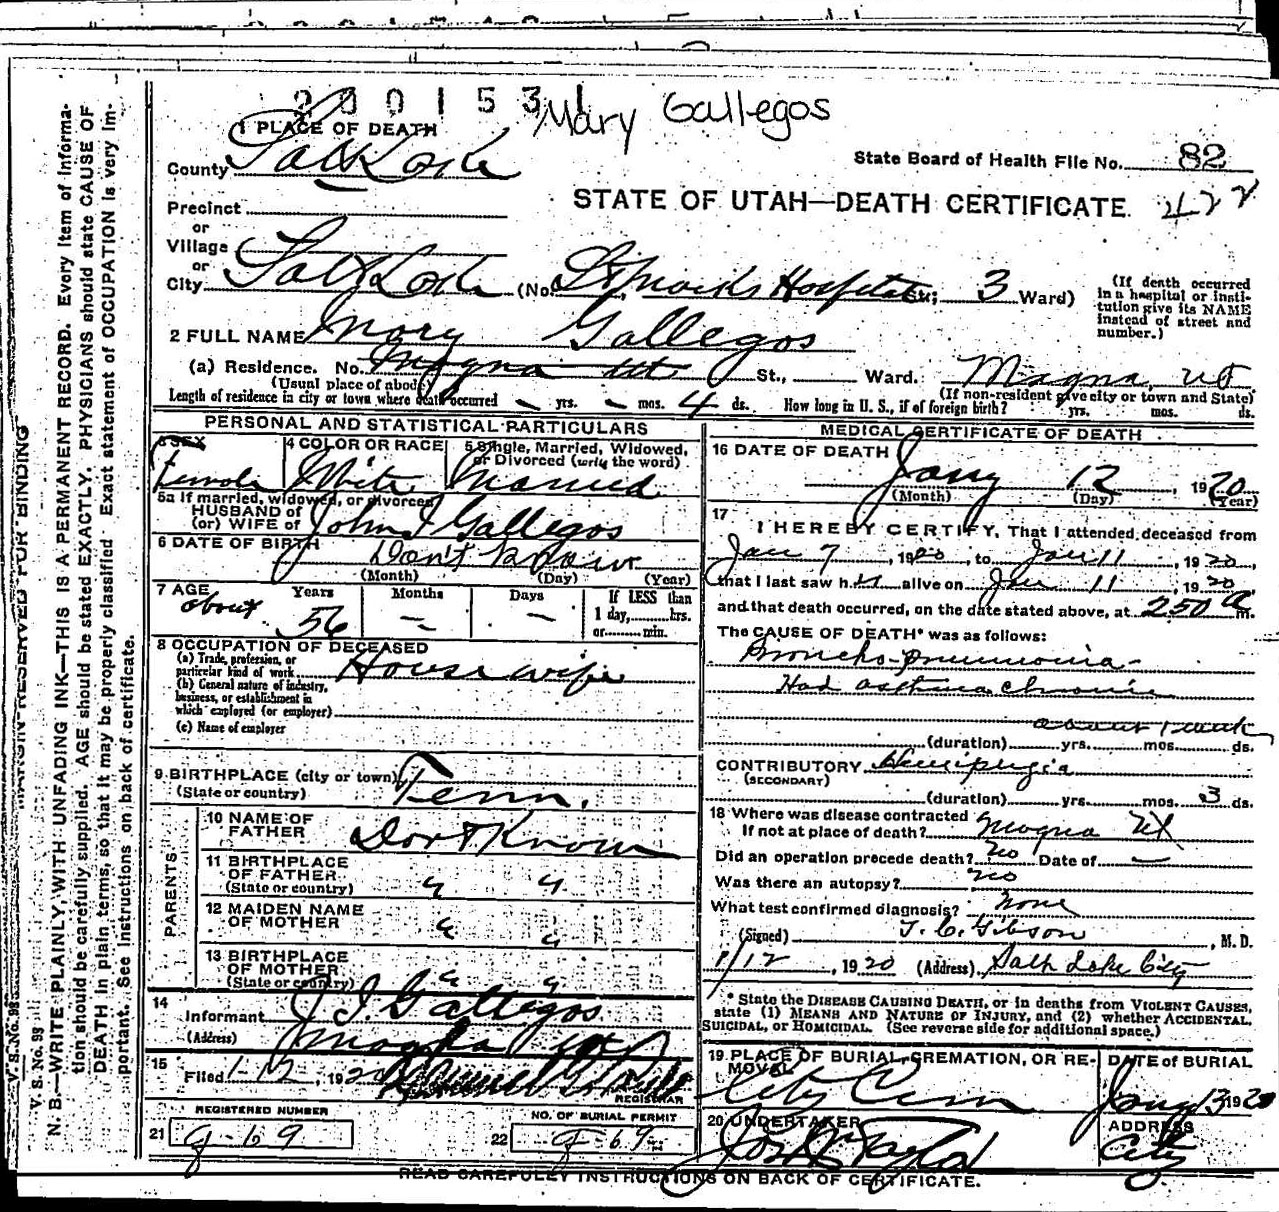 2 0 0 1 5 3 1
Mary Gallegos
1 PLACE OF DEATH
County Salt Lake
State Board of Health File No. 82
422
STATE OF UTAH—DEATH CERTIFICATE.
Precinct
or
Village
or
City Salt Lake (No. St Marks Hospital St; 3 Ward)
(If death occurred in a hospital or insti-
tution give its NAME instead of street and
number.)
2 FULL NAME Mary Gallegos
(a) Residence. No. Magna Ut. St., Ward. Magna, Ut
(Usual place of abode)
(If non-resident give city or town and State)
Length of residence in city or town where death occurred — yrs. — mos. 4 ds. How long in U. S., if of foreign birth? yrs. mos. ds.
PERSONAL AND STATISTICAL PARTICULARS
3 SEX Female
4 COLOR OR RACE White
5 Single, Married, Widowed, or Divorced (write the word) Married
5a If married, widowed, or divorced
HUSBAND of
(or) WIFE of John I Gallegos
6 DATE OF BIRTH Don't Know
(Month) (Day) (Year)
7 AGE about Years 56 Months — Days —
If LESS than
1 day,......hrs.
or......min.
8 OCCUPATION OF DECEASED
(a) Trade, profession, or
particular kind of work Housewife
(b) General nature of industry,
business, or establishment in
which employed (or employer)
(c) Name of employer
9 BIRTHPLACE (city or town)
(State or country) Tenn.
PARENTS
10 NAME OF
FATHER Dont Know
11 BIRTHPLACE
OF FATHER
(State or country) " "
12 MAIDEN NAME
OF MOTHER " "
13 BIRTHPLACE
OF MOTHER
(State or country) " "
14
Informant J. I. Gallegos
(Address) Magna Ut
15
Filed 1-12, 1920
REGISTRAR
REGISTERED NUMBER
21 g-69
NO. OF BURIAL PERMIT
22 g-69
MEDICAL CERTIFICATE OF DEATH
16 DATE OF DEATH Jany 12, 1920
(Month) (Day) (Year)
17
I HEREBY CERTIFY, That I attended deceased from
Jan 7, 1920, to Jan 11, 1920
that I last saw her alive on Jan 11, 1920
and that death occurred, on the date stated above, at 250 a m.
The CAUSE OF DEATH* was as follows:
Broncho-pneumonia-
Had asthma chronic
about 1 week
(duration) yrs. mos. ds.
CONTRIBUTORY Hemiplegia
(SECONDARY)
(duration) yrs. mos. 3 ds.
18 Where was disease contracted
If not at place of death? Magna Ut
Did an operation precede death? No Date of —
Was there an autopsy? no
What test confirmed diagnosis? None
(Signed) T. C. Gibson, M. D.
1/12, 1920 (Address) Salt Lake City
* State the DISEASE CAUSING DEATH, or in deaths from VIOLENT CAUSES,
state (1) MEANS AND NATURE OF INJURY, and (2) whether ACCIDENTAL,
SUICIDAL, or HOMICIDAL. (See reverse side for additional space.)
19 PLACE OF BURIAL, CREMATION, OR RE-
MOVAL City Cem
DATE of BURIAL
Jany 13 1920
20 UNDERTAKER
Jos Wm Taylor
ADDRESS
City
READ CAREFULLY INSTRUCTIONS ON BACK OF CERTIFICATE.
MARGIN RESERVED FOR BINDING
V. S. No. 99
V. S. No. 99
N. B.—WRITE PLAINLY, WITH UNFADING INK—THIS IS A PERMANENT RECORD. Every item of informa-
tion should be carefully supplied. AGE should be stated EXACTLY. PHYSICIANS should state CAUSE OF
DEATH in plain terms, so that it may be properly classified. Exact statement of OCCUPATION is very im-
portant. See instructions on back of certificate.